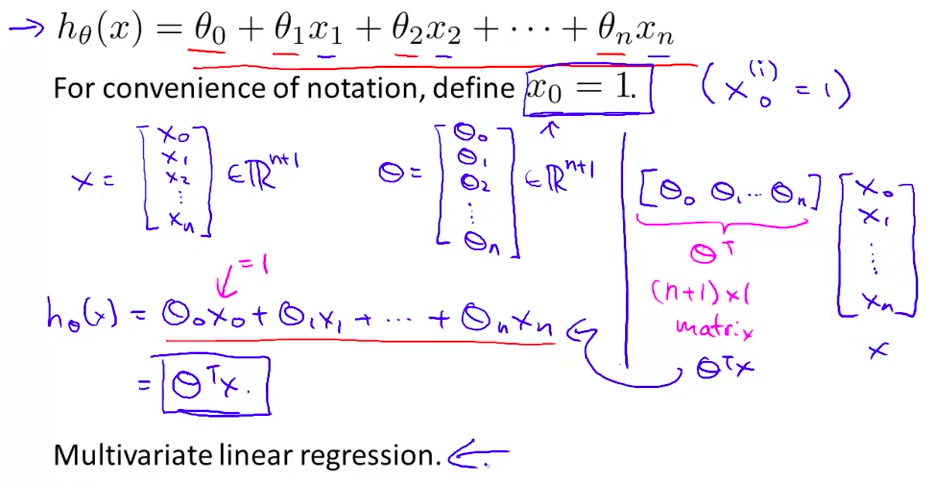 → hθ(x) = θ₀ + θ₁x₁ + θ₂x₂ + ⋯ + θₙxₙ
For convenience of notation, define x₀ = 1. (x₀⁽ⁱ⁾ = 1)
x = [x₀ x₁ x₂ ⋮ xₙ] ∈ ℝⁿ⁺¹ θ = [θ₀ θ₁ θ₂ ⋮ θₙ] ∈ ℝⁿ⁺¹
[θ₀ θ₁ ⋯ θₙ] [x₀ x₁ ⋮ xₙ]
θᵀ
(n+1)×1
matrix
x
θᵀx
=1
hθ(x) = θ₀x₀ + θ₁x₁ + ⋯ + θₙxₙ
= θᵀx.
Multivariate linear regression. ←